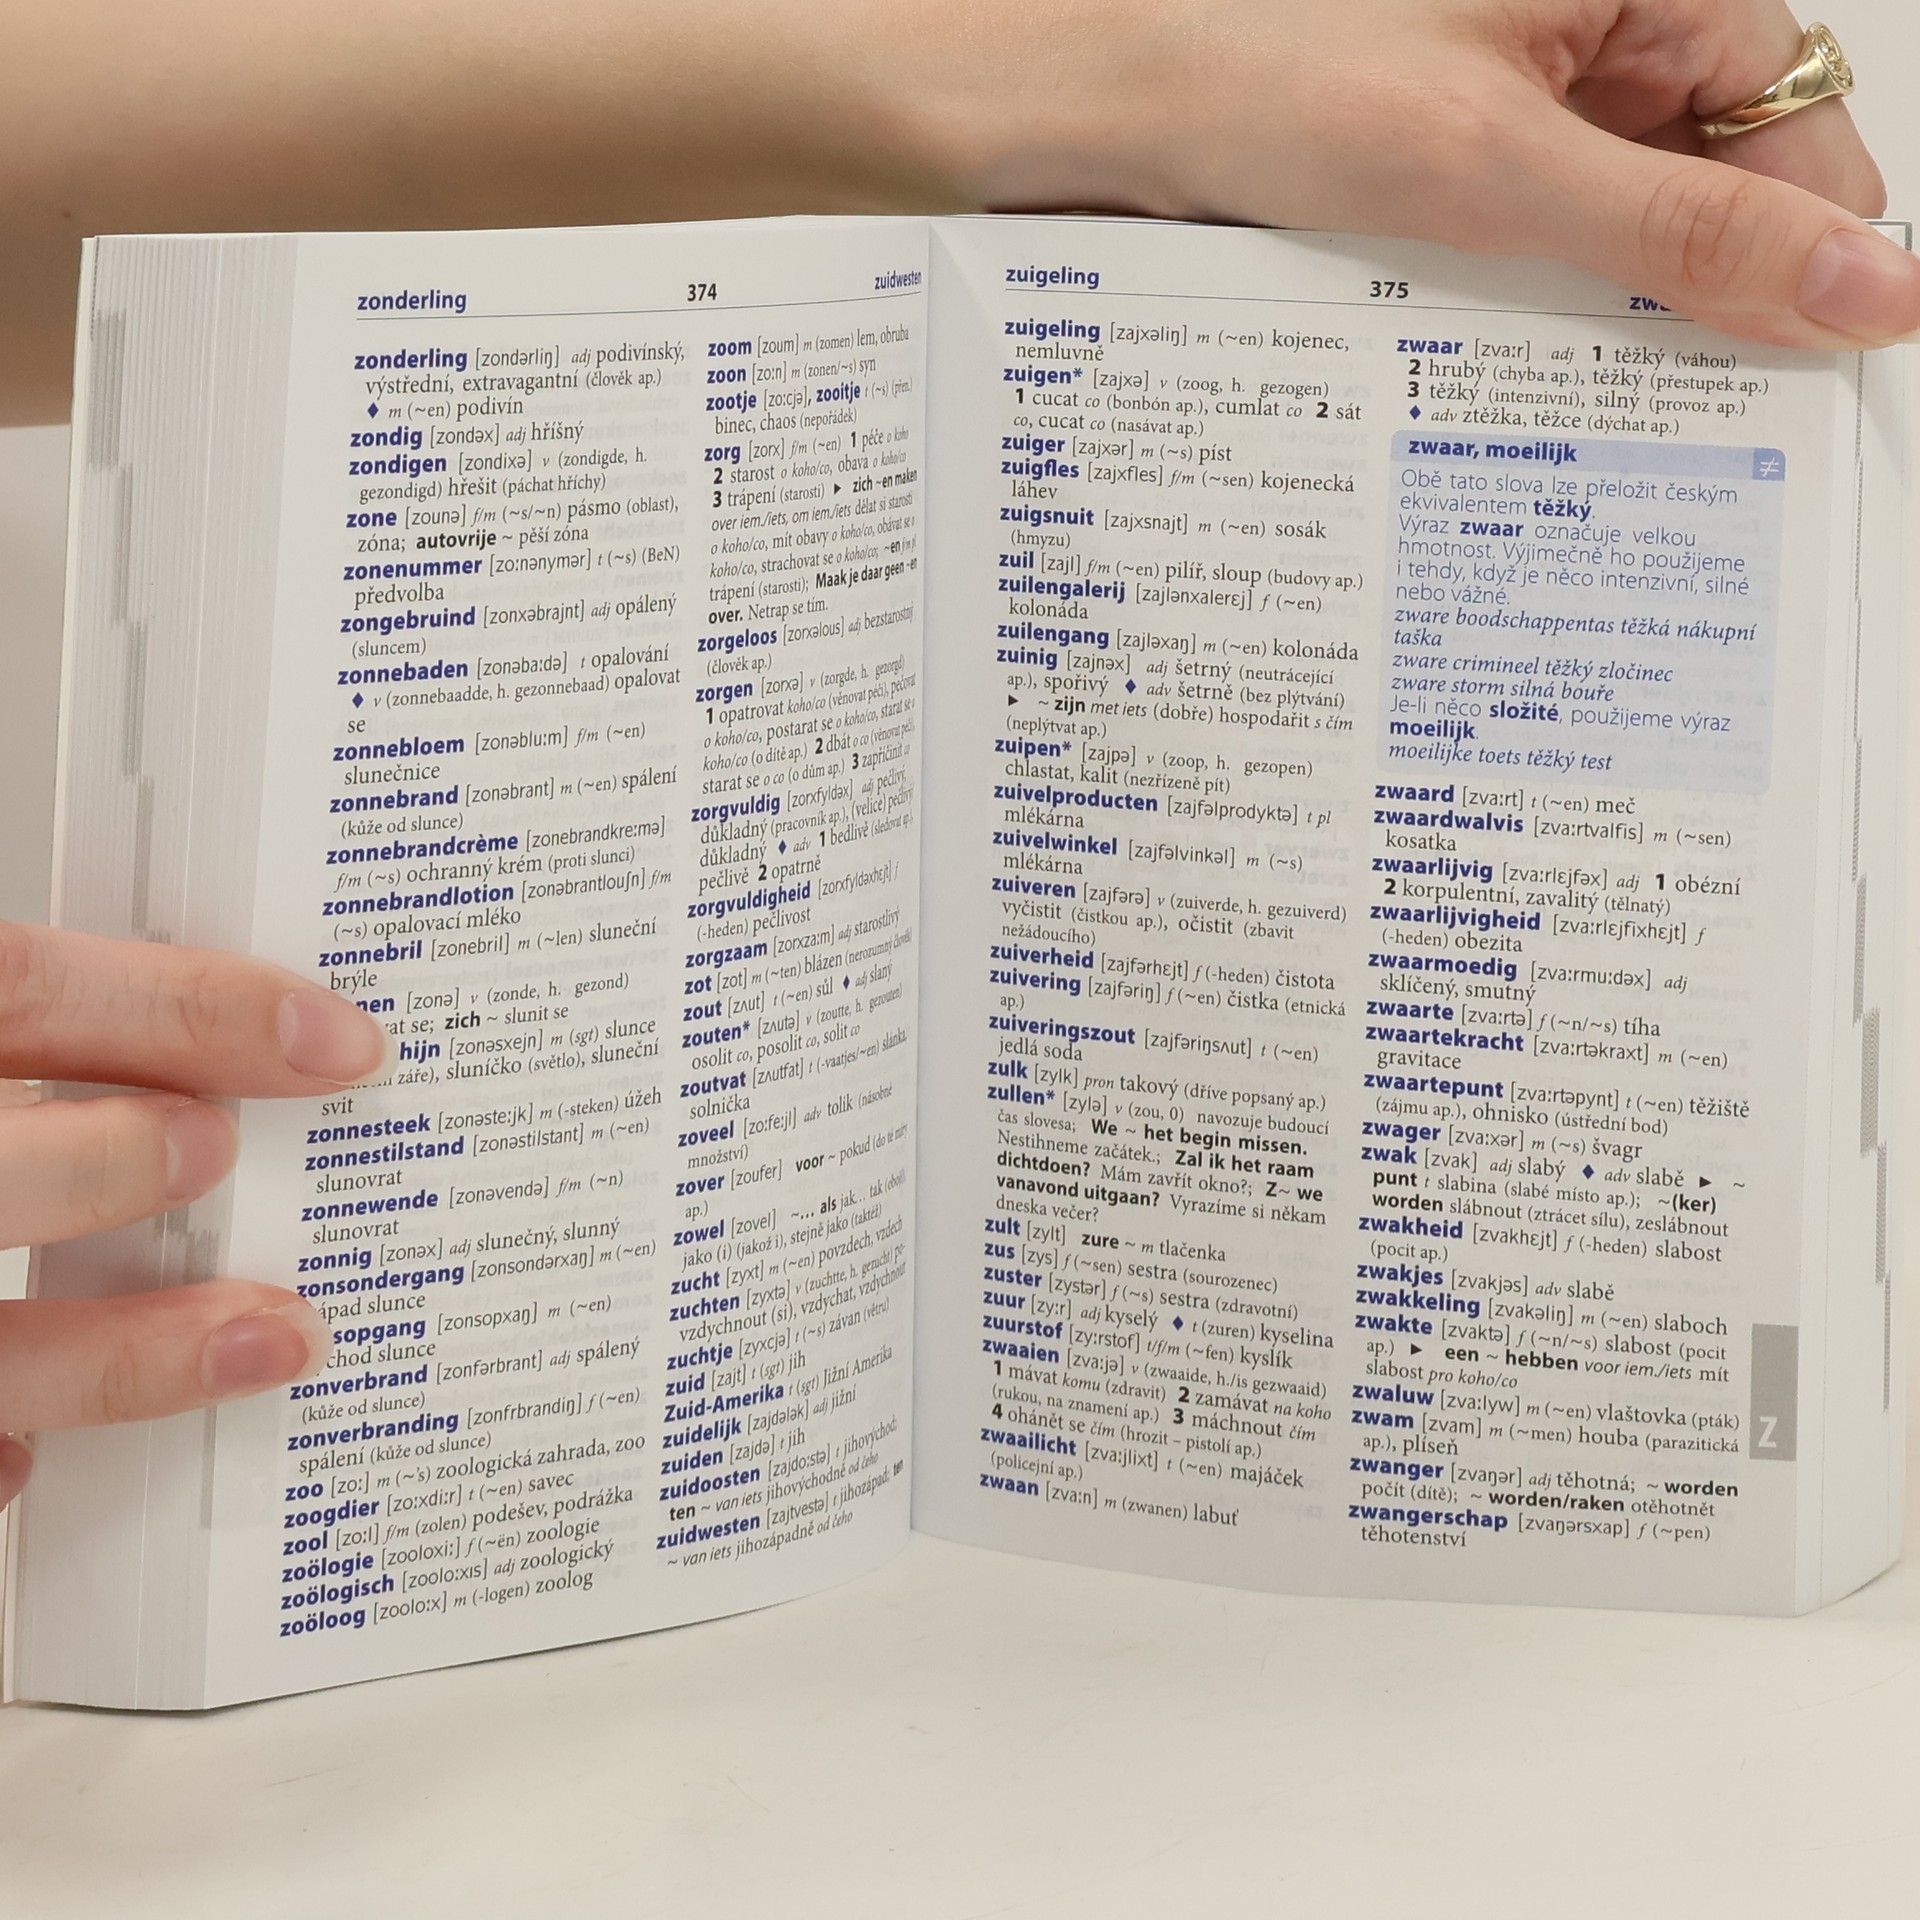 zonderling 374 zuidwesten
zonderling [zondərliŋ] adj podivínský,
výstřední, extravagantní (člověk ap.)
♦ m (~en) podivín
zondig [zondəx] adj hříšný
zondigen [zondixə] v (zondigde, h.
gezondigd) hřešit (páchat hříchy)
zone [zounə] f/m (~s/~n) pásmo (oblast),
zóna; autovrije ~ pěší zóna
zonenummer [zo:nənymər] t (~s) (BeN)
předvolba
zongebruind [zonxəbrajnt] adj opálený
(sluncem)
zonnebaden [zonəba:də] t opalování
♦ v (zonnebaadde, h. gezonnebaad) opalovat
se
zonnebloem [zonəblu:m] f/m (~en)
slunečnice
zonnebrand [zonəbrant] m (~en) spálení
(kůže od slunce)
zonnebrandcrème [zonebrandkre:mə]
f/m (~s) ochranný krém (proti slunci)
zonnebrandlotion [zonəbrantlouʃn] f/m
(~s) opalovací mléko
zonnebril [zonebril] m (~len) sluneční
brýle
nen [zonə] v (zonde, h. gezond)
vat se; zich ~ slunit se
hijn [zonəsxejn] m (sgt) slunce
záře), sluníčko (světlo), sluneční
svit
zonnesteek [zonəste:jk] m (-steken) úžeh
zonnestilstand [zonəstilstant] m (~en)
slunovrat
zonnewende [zonəvendə] f/m (~n)
slunovrat
zonnig [zonəx] adj slunečný, slunný
zonsondergang [zonsondərxaŋ] m (~en)
ápad slunce
sopgang [zonsopxaŋ] m (~en)
chod slunce
zonverbrand [zonfərbrant] adj spálený
(kůže od slunce)
zonverbranding [zonfrbrandiŋ] f (~en)
spálení (kůže od slunce)
zoo [zo:] m (~'s) zoologická zahrada, zoo
zoogdier [zo:xdi:r] t (~en) savec
zool [zo:l] f/m (zolen) podešev, podrážka
zoölogie [zooloxi:] f (~ën) zoologie
zoölogisch [zoolo:xıs] adj zoologický
zoöloog [zoolo:x] m (-logen) zoolog
zoom [zoum] m (zomen) lem, obruba
zoon [zo:n] m (zonen/~s) syn
zootje [zo:cjə], zooitje t (~s) (přen.)
binec, chaos (nepořádek)
zorg [zorx] f/m (~en) 1 péče o koho
2 starost o koho/co, obava o koho/co
3 trápení (starosti) ► zich ~en maken
over iem./iets, om iem./iets dělat si starosti
o koho/co, mít obavy o koho/co, obávat se o
koho/co, strachovat se o koho/co; ~en f/m pl
trápení (starosti); Maak je daar geen ~en
over. Netrap se tím.
zorgeloos [zorxəlous] adj bezstarostný
(člověk ap.)
zorgen [zorxə] v (zorgde, h. gezorgd)
1 opatrovat koho/co (věnovat péči), pečovat
o koho/co, postarat se o koho/co, starat se o
koho/co (o dítě ap.) 2 dbát o co (věnovat péči),
starat se o co (o dům ap.) 3 zapříčinit co
zorgvuldig [zorxfyldəx] adj pečlivý,
důkladný (pracovník ap.), (velice) pečlivý
důkladný ♦ adv 1 bedlivě (sledovat ap.),
pečlivě 2 opatrně
zorgvuldigheid [zorxfyldəxhɛjt] f
(-heden) pečlivost
zorgzaam [zorxza:m] adj starostlivý
zot [zot] m (~ten) blázen (nerozumný člověk)
zout [zʌut] t (~en) sůl ♦ adj slaný
zouten* [zʌutə] v (zoutte, h. gezouten)
osolit co, posolit co, solit co
zoutvat [zʌutfat] t (-vaatjes/~en) slánka,
solnička
zoveel [zo:fe:jl] adv tolik (násobné
množství)
zover [zoufer] voor ~ pokud (do té míry
ap.)
zowel [zovel] ~... als jak... tak (obojí),
jako (i) (jakož i), stejně jako (taktéž)
zucht [zyxt] m (~en) povzdech, vzdech
zuchten [zyxtə] v (zuchtte, h. gezucht) po-
vzdychnout (si), vzdychat, vzdychnout
zuchtje [zyxcjə] t (~s) závan (větru)
zuid [zajt] t (sgt) jih
Zuid-Amerika t (sgt) Jižní Amerika
zuidelijk [zajdələk] adj jižní
zuiden [zajdə] t jih
zuidoosten [zajdo:stə] t jihovýchod;
ten ~ van iets jihovýchodně od čeho
zuidwesten [zajtvestə] t jihozápad; ten
~ van iets jihozápadně od čeho
zuigeling 375
zuigeling [zajxəliŋ] m (~en) kojenec,
nemluvně
zuigen* [zajxə] v (zoog, h. gezogen)
1 cucat co (bonbón ap.), cumlat co 2 sát
co, cucat co (nasávat ap.)
zuiger [zajxər] m (~s) píst
zuigfles [zajxfles] f/m (~sen) kojenecká
láhev
zuigsnuit [zajxsnajt] m (~en) sosák
(hmyzu)
zuil [zajl] f/m (~en) pilíř, sloup (budovy ap.)
zuilengalerij [zajlənxalerɛj] f (~en)
kolonáda
zuilengang [zajləxaŋ] m (~en) kolonáda
zuinig [zajnəx] adj šetrný (neutrácející
ap.), spořivý ♦ adv šetrně (bez plýtvání)
► ~ zijn met iets (dobře) hospodařit s čím
(neplýtvat ap.)
zuipen* [zajpə] v (zoop, h. gezopen)
chlastat, kalit (nezřízeně pít)
zuivelproducten [zajfəlprodyktə] t pl
mlékárna
zuivelwinkel [zajfəlvinkəl] m (~s)
mlékárna
zuiveren [zajfərə] v (zuiverde, h. gezuiverd)
vyčistit (čistkou ap.), očistit (zbavit
nežádoucího)
zuiverheid [zajfərhɛjt] f (-heden) čistota
zuivering [zajfəriŋ] f (~en) čistka (etnická
ap.)
zuiveringszout [zajfəriŋsʌut] t (~en)
jedlá soda
zulk [zylk] pron takový (dříve popsaný ap.)
zullen* [zylə] v (zou, 0) navozuje budoucí
čas slovesa; We ~ het begin missen.
Nestihneme začátek.; Zal ik het raam
dichtdoen? Mám zavřít okno?; Z~ we
vanavond uitgaan? Vyrazíme si někam
dneska večer?
zult [zylt] zure ~ m tlačenka
zus [zys] f (~sen) sestra (sourozenec)
zuster [zystər] f (~s) sestra (zdravotní)
zuur [zy:r] adj kyselý ♦ t (zuren) kyselina
zuurstof [zy:rstof] t/f/m (~fen) kyslík
zwaaien [zva:jə] v (zwaaide, h./is gezwaaid)
1 mávat komu (zdravit) 2 zamávat na koho
(rukou, na znamení ap.) 3 máchnout čím
4 ohánět se čím (hrozit – pistolí ap.)
zwaailicht [zva:jlixt] t (~en) majáček
(policejní ap.)
zwaan [zva:n] m (zwanen) labuť
zwaar [zva:r] adj 1 těžký (váhou)
2 hrubý (chyba ap.), těžký (přestupek ap.)
3 těžký (intenzivní), silný (provoz ap.)
♦ adv ztěžka, těžce (dýchat ap.)
zwaar, moeilijk ≠
Obě tato slova lze přeložit českým
ekvivalentem těžký.
Výraz zwaar označuje velkou
hmotnost. Výjimečně ho použijeme
i tehdy, když je něco intenzivní, silné
nebo vážné.
zware boodschappentas těžká nákupní
taška
zware crimineel těžký zločinec
zware storm silná bouře
Je-li něco složité, použijeme výraz
moeilijk.
moeilijke toets těžký test
zwaard [zva:rt] t (~en) meč
zwaardwalvis [zva:rtvalfis] m (~sen)
kosatka
zwaarlijvig [zva:rlɛjfəx] adj 1 obézní
2 korpulentní, zavalitý (tělnatý)
zwaarlijvigheid [zva:rlɛjfixhɛjt] f
(-heden) obezita
zwaarmoedig [zva:rmu:dəx] adj
sklíčený, smutný
zwaarte [zva:rtə] f (~n/~s) tíha
zwaartekracht [zva:rtəkraxt] m (~en)
gravitace
zwaartepunt [zva:rtəpynt] t (~en) těžiště
(zájmu ap.), ohnisko (ústřední bod)
zwager [zva:xər] m (~s) švagr
zwak [zvak] adj slabý ♦ adv slabě ► ~
punt t slabina (slabé místo ap.); ~(ker)
worden slábnout (ztrácet sílu), zeslábnout
zwakheid [zvakhɛjt] f (-heden) slabost
(pocit ap.)
zwakjes [zvakjəs] adv slabě
zwakkeling [zvakəliŋ] m (~en) slaboch
zwakte [zvaktə] f (~n/~s) slabost (pocit
ap.) ► een ~ hebben voor iem./iets mít
slabost pro koho/co
zwaluw [zva:lyw] m (~en) vlaštovka (pták)
zwam [zvam] m (~men) houba (parazitická
ap.), plíseň
zwanger [zvaŋər] adj těhotná; ~ worden
počít (dítě); ~ worden/raken otěhotnět
zwangerschap [zvaŋərsxap] f (~pen)
těhotenství
Z